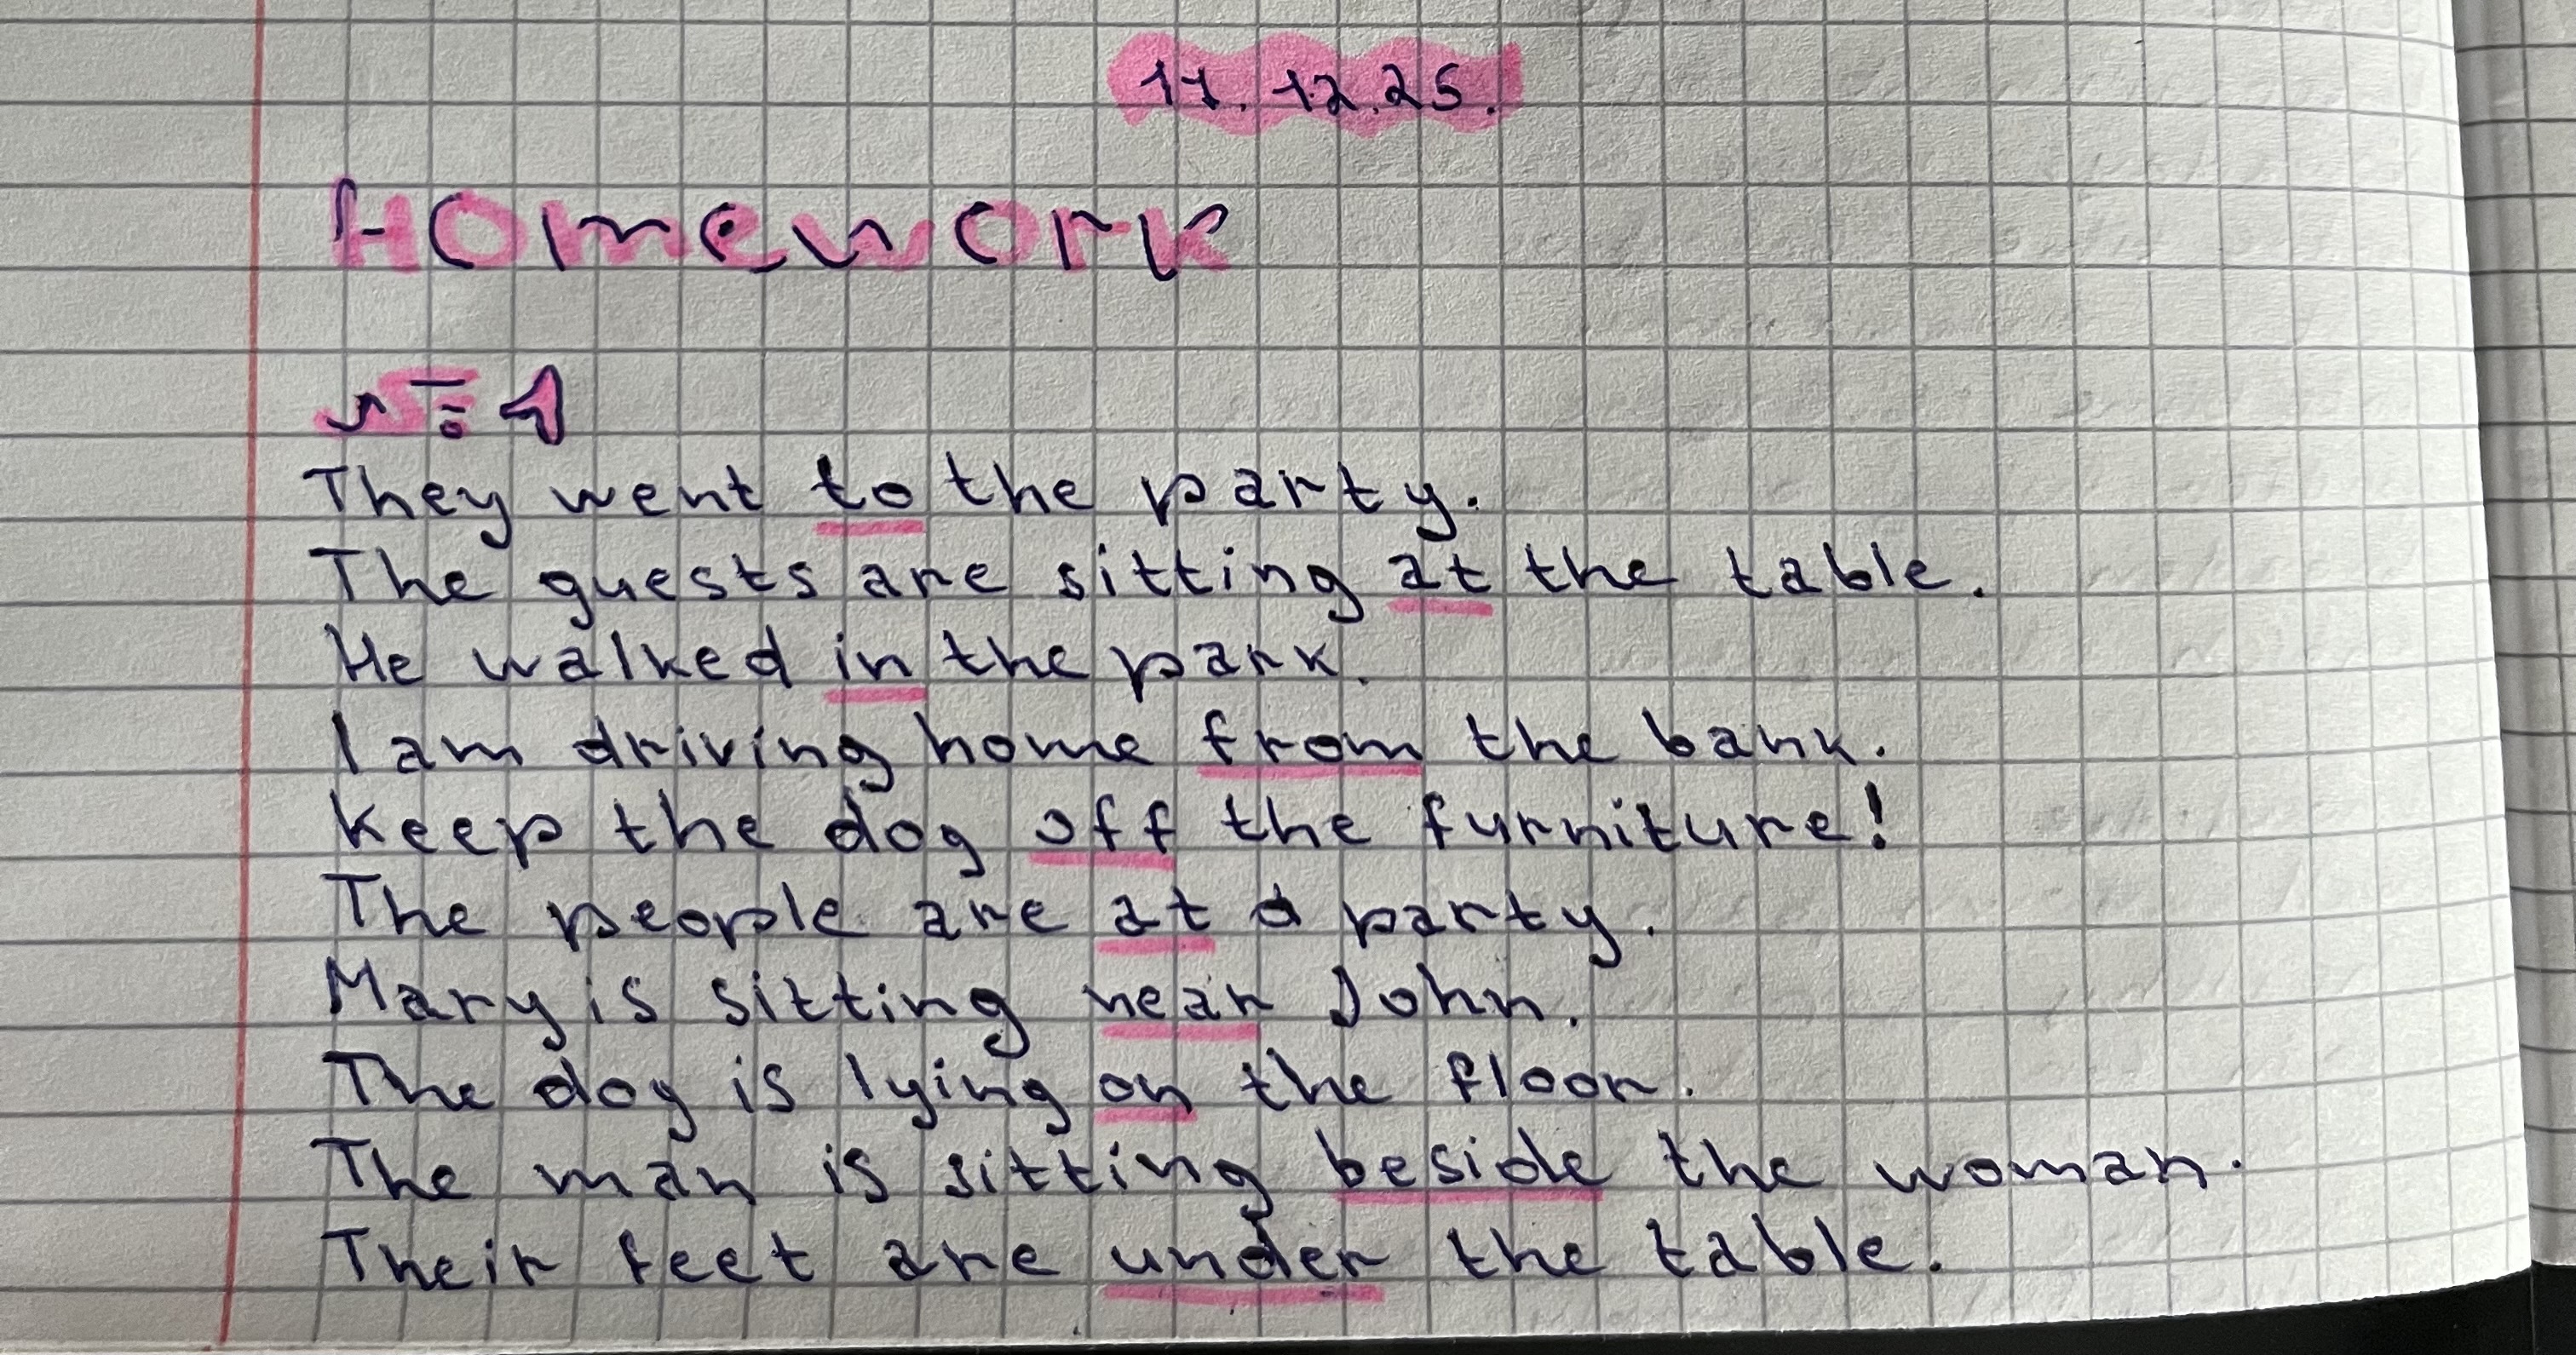 11.12.25.
Homework
№ 1
They went to the party.
The guests are sitting at the table.
He walked in the park.
I am driving home from the bank.
Keep the dog off the furniture!
The people are at a party.
Mary is sitting near John.
The dog is lying on the floor.
The man is sitting beside the woman.
Their feet are under the table.